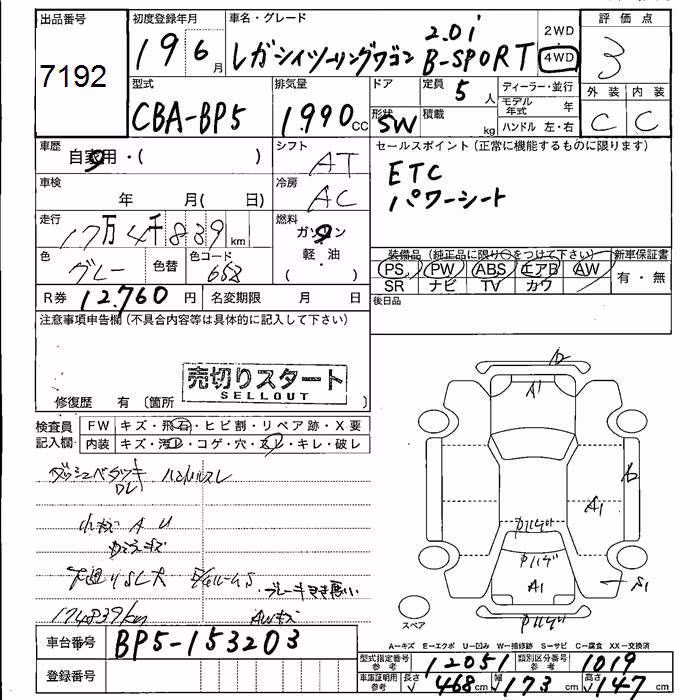 出品番号
7192
初度登録年月
19 6月
車名・グレード
レガシィツーリングワゴン 2.0i B-SPORT
2WD
4WD
評価点
3
外装 内装
C C
型式
CBA-BP5
排気量
1990 CC
ドア
形状
SW
定員
5 人
積載
kg
ディーラー・並行
モデル年式 年
ハンドル 左・右
車歴
自家用・( )
シフト
AT
セールスポイント(正常に機能するものに限ります)
ETC
パワーシート
車検
年 月( 日)
冷房
AC
走行
17万4千839 km
燃料
ガソリン
軽・油
( )
色
グレー
色替
色コード
653
装備品(純正品に限り○をつけて下さい)
PS PW ABS エアB AW
SR ナビ TV カワ
新車保証書
有・無
R券 12,760 円
名変期限 月 日
後日品
注意事項申告欄(不具合内容等は具体的に記入して下さい)
売切りスタート
SELLOUT
修復歴 有〔箇所 〕
検査員記入欄
FW キズ・飛石・ヒビ割・リペア跡・X要
内装 キズ・汚レ・コゲ・穴・スレ・キレ・破レ
ハンドルスレ
小キズ A U
下廻りS大
ブレーキきき悪い
174839km
AWキズ
A1
A1
A1
S1
スペア
A=キズ E=エクボ U=凹み W=補修跡 S=サビ C=腐食 XX=交換済
車台番号 BP5-153203
登録番号
型式指定番号 参考 12051
類別区分番号 参考 1019
車庫証明用 参考 長さ 468 cm 幅 173 cm 高さ 147 cm